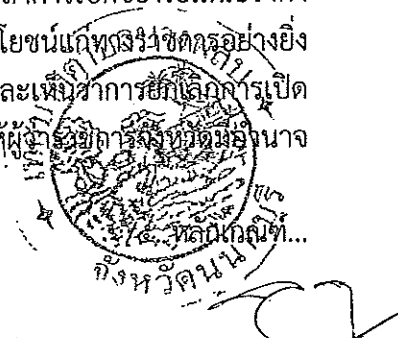 โยชน์แก่ทางราชการอย่างยิ่ง
ละเห็นว่าการยกเลิกการเปิด
ห้ผู้ว่าราชการจังหวัดมีอำนาจ
/๕. หลักเกณฑ์...
จังหวัดนนทบุรี